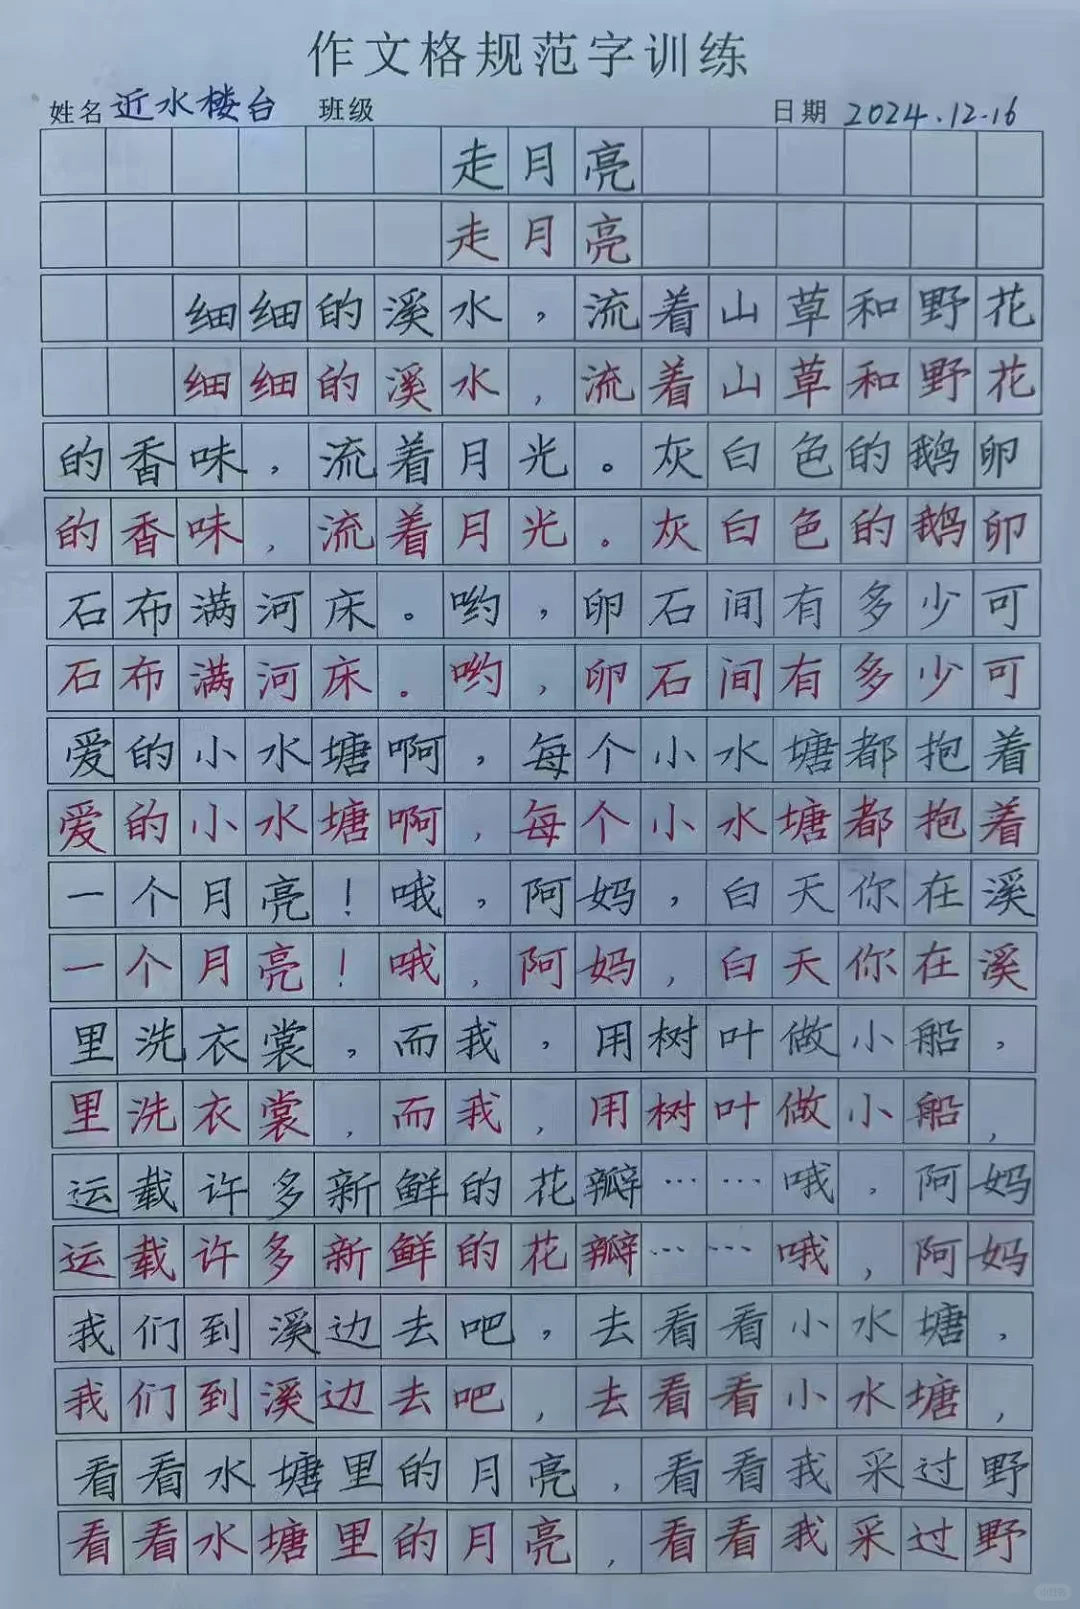 作文格规范字训练
姓名 近水楼台 班级 日期 2024.12.16
走月亮
走月亮
细细的溪水，流着山草和野花
细细的溪水，流着山草和野花
的香味，流着月光。灰白色的鹅卵
的香味，流着月光。灰白色的鹅卵
石布满河床。哟，卵石间有多少可
石布满河床。哟，卵石间有多少可
爱的小水塘啊，每个小水塘都抱着
爱的小水塘啊，每个小水塘都抱着
一个月亮！哦，阿妈，白天你在溪
一个月亮！哦，阿妈，白天你在溪
里洗衣裳，而我，用树叶做小船，
里洗衣裳，而我，用树叶做小船，
运载许多新鲜的花瓣……哦，阿妈
运载许多新鲜的花瓣……哦，阿妈
我们到溪边去吧，去看看小水塘，
我们到溪边去吧，去看看小水塘，
看看水塘里的月亮，看看我采过野
看看水塘里的月亮，看看我采过野